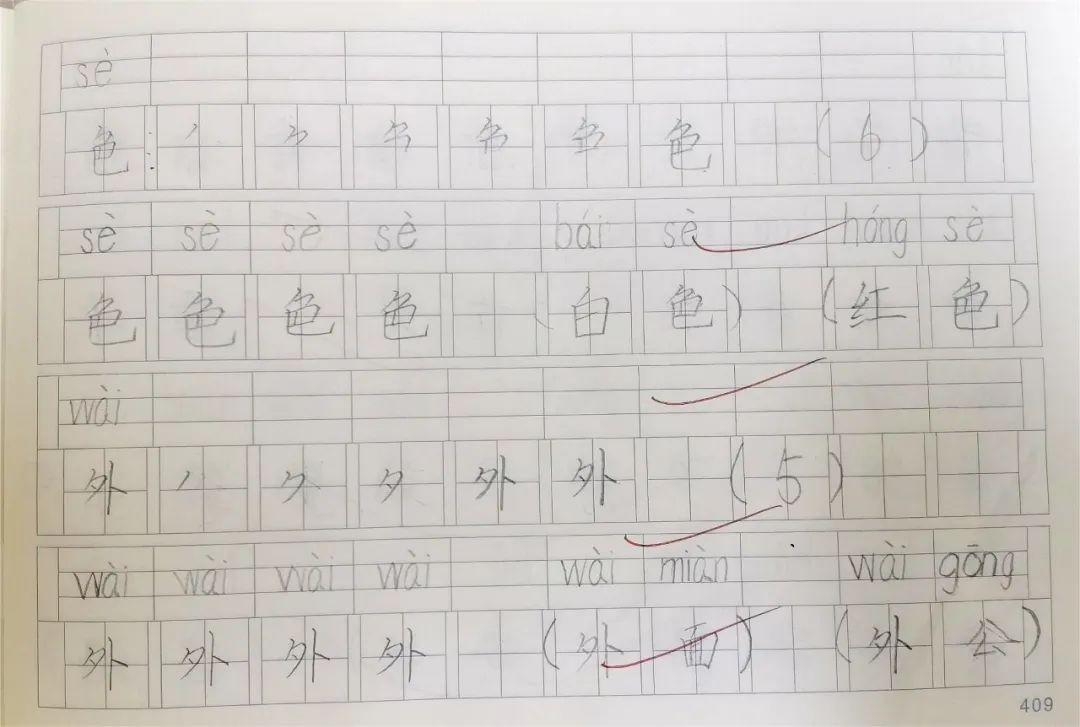 sè
色：丿 ⺈ 色 (6)
sè sè sè sè bái sè hóng sè
色 色 色 色 (白 色) (红 色)
wài
外 丿 ク 夕 外 外 (5)
wài wài wài wài wài miàn wài gōng
外 外 外 外 (外 面) (外 公)
409